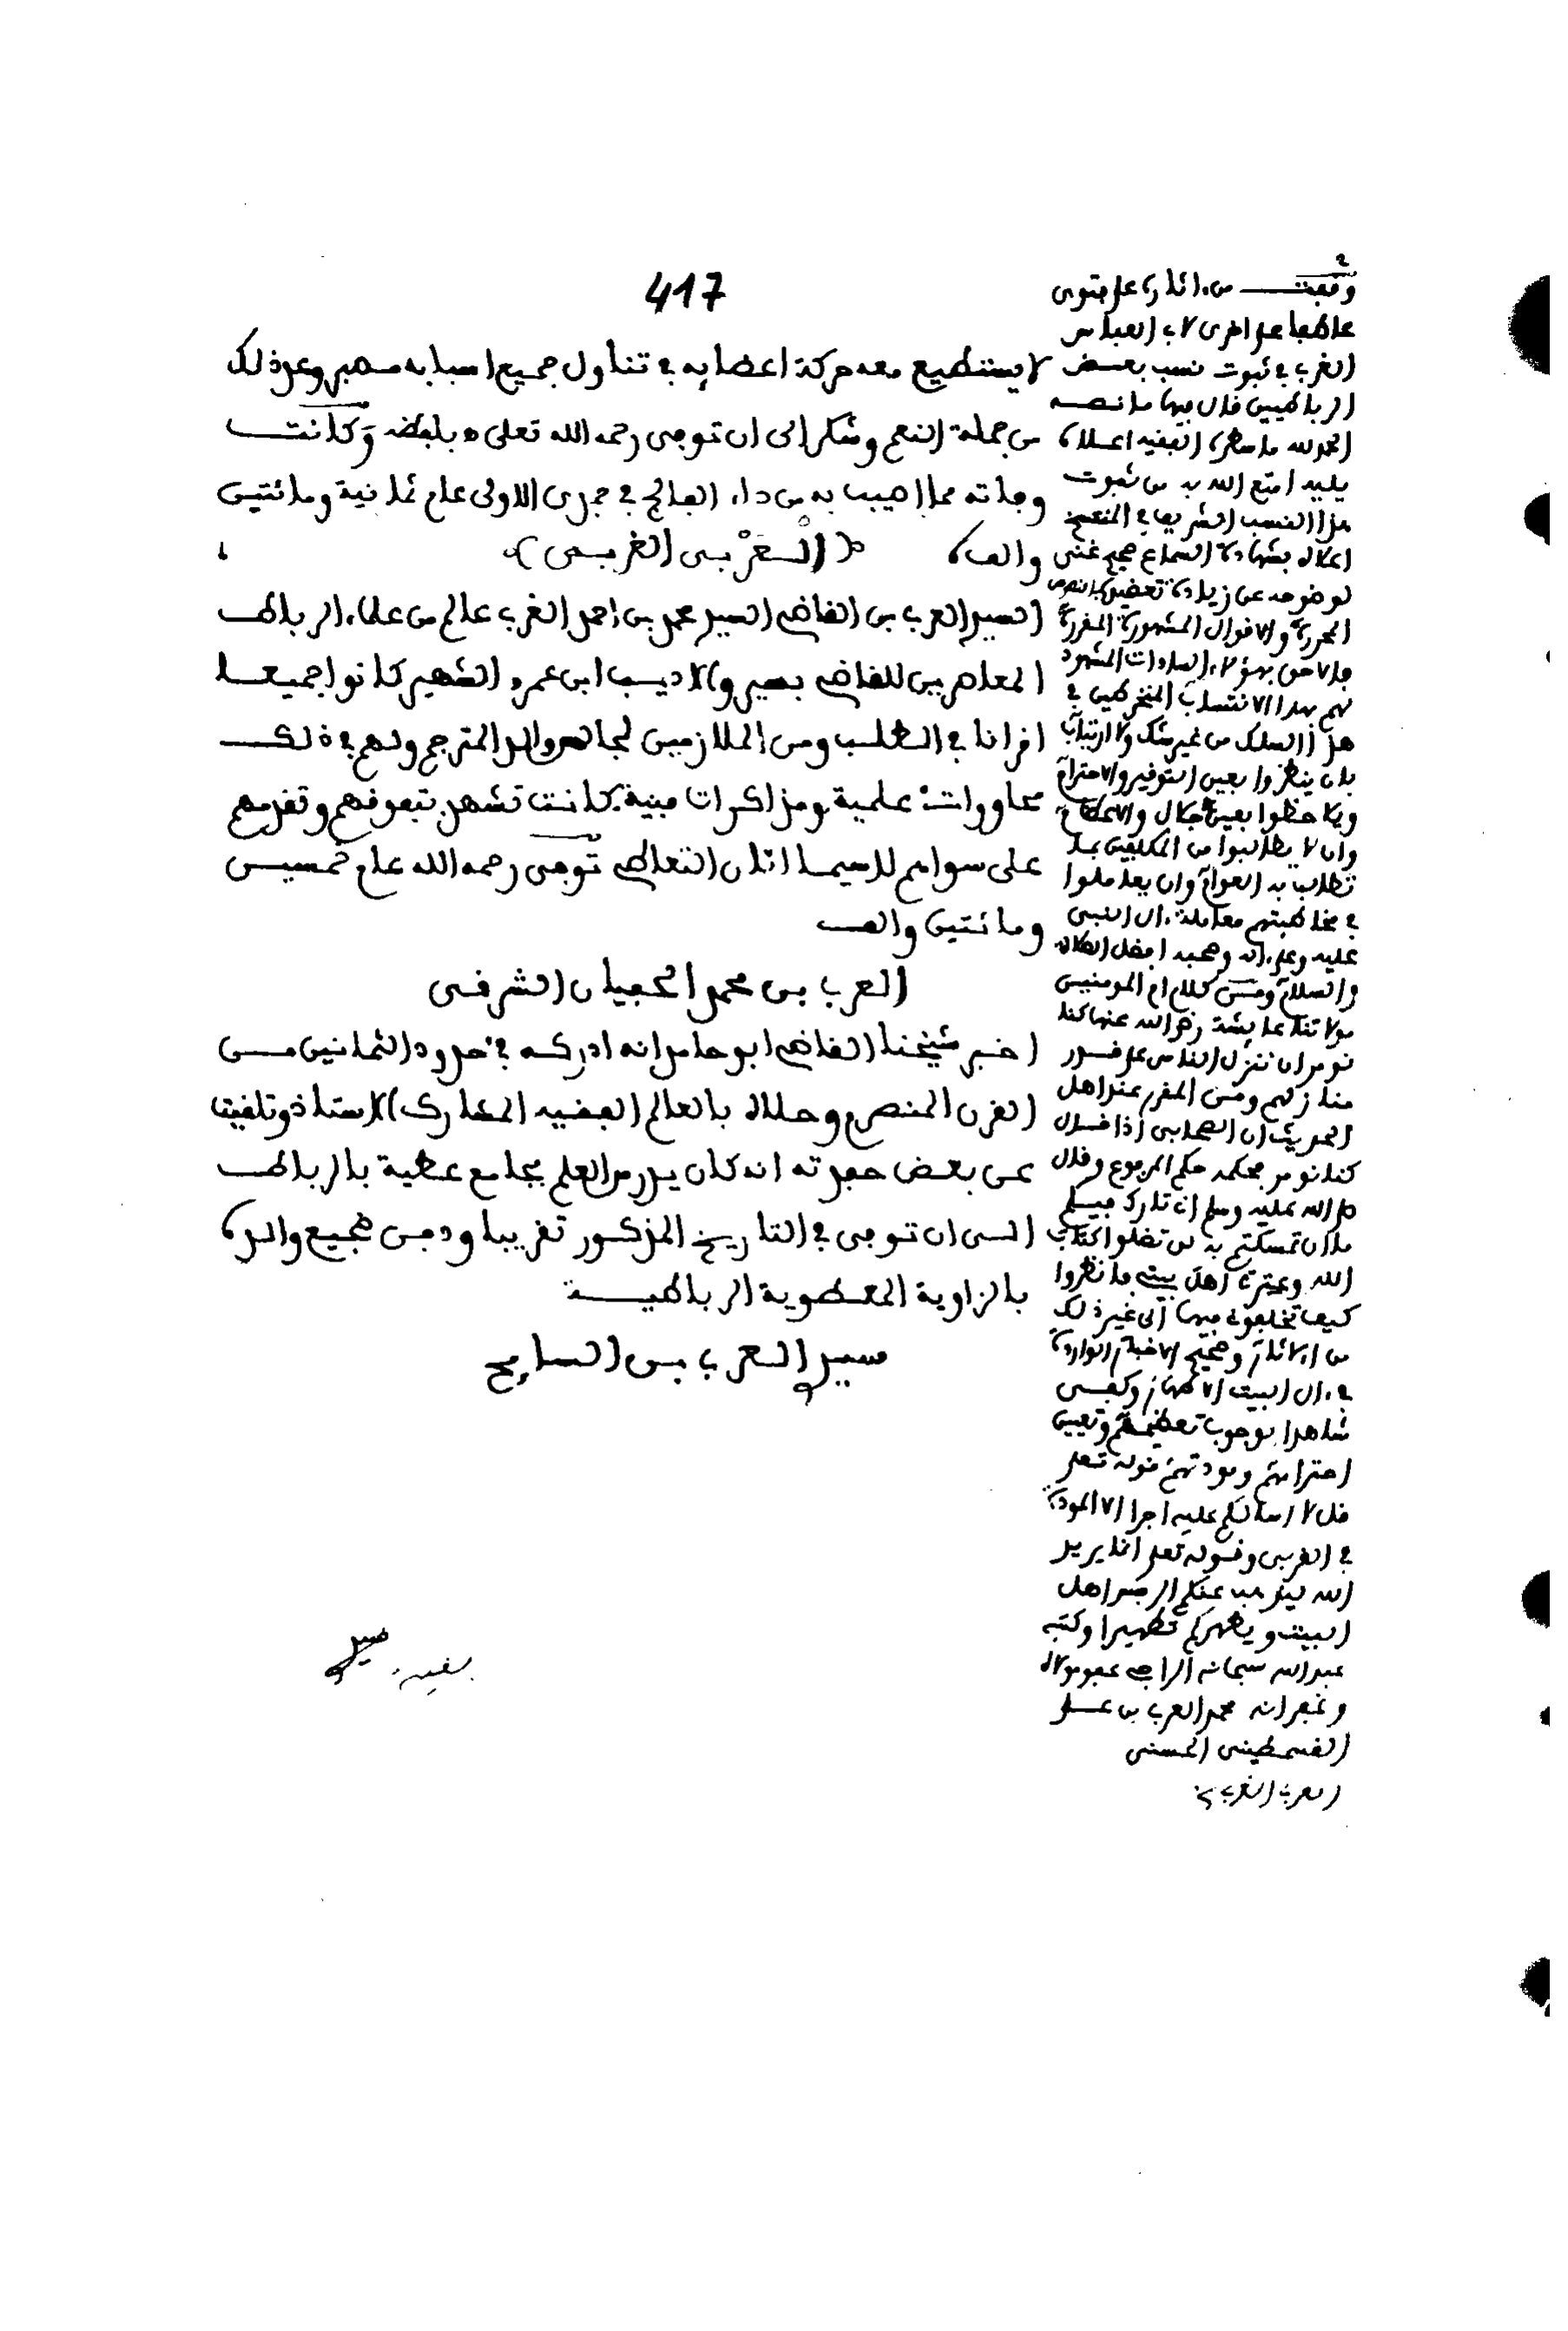 417
لا يستطيع معه حركة أعضايه في تناول جميع اسبابه صبر وعد ذلك
من جملة النعم وشكر الى ان توفي رحمه الله تعلى ه بلفظه وكانت
وفاته مما اصيب به من داء الفالج في جمدى الاولى عام ثمانية ومائتين
والف
(العربي الغربي)
السيد العربي بن القاضي السيد محمد بن احمد الغربي عالم من علماء الرباط
المعاصرين للقاضي بصير والاديب ابن عمرو الشهير كانوا جميعا
اقرانا في الطلب ومن الملازمين لمجالس والد المترجم ولهم في ذلك
محاورات علمية ومذاكرات فنية كانت تشهد بتفوقهم وتقدمهم
على سواهم لاسيما اذان التعالم توفي رحمه الله عام خمسين
ومائتين والف
العربي بن محمد الحجيان الشرقي
اخبر شيخنا القاضي ابو حامد انه ادركه في حدود الثمانين من
القرن المنصرم وحلاه بالعالم الفقيه المشارك الاستاذ وتلقيت
عن بعض حفدته انه كان يدرس العلم بجامع عطية بالرباط
الى ان توفي في التاريخ المذكور تقريبا ودفن ضجيع والده
بالزاوية المعطوية الرباطية
سيدي العربي بن السايح
وقفت من اثاره على فتوى
عاطفا على اخرى لابي العباس
الغربي في ثبوت نسب بعض
الرباطيين قال فيها ما نصه
الحمد لله ما سطره الفقيه اعلاه
يليه امتع الله به من ثبوت
هذا النسب الشريف في المنتسخ
اعلاه بشهادة السماع صحيح غني
لوضوحه عن زيادة تعضيد بالنصوص
المحررة والاقوال المشهورة المقررة
فالاحق بهؤلاء السادات المشهود
لهم بهذا الانتساب المنخرطين في
هذا السلك من غير شك ولا ارتياب
بان ينظروا بعين التوقير والاحترام
ويلاحظوا بعين الاجلال والاعظام
وان لا يطالبوا من المكلفين بما
تطالب به العوام وان يعاملوا
في مخاطبتهم معاملة ءال النبي
عليه وعلى ءاله وصحبه افضل الصلاة
والسلام ومن كلام ام المومنين
مولاتنا عايشة رضي الله عنها كنا
نومر ان ننزل الناس على قدر
منازلهم ومن المقرر عند اهل
الحديث ان الصحابي اذا قال
كنا نومر فحكمه حكم المرفوع وقال
صلى الله عليه وسلم اني تارك فيكم
ما ان تمسكتم به لن تضلوا كتاب
الله وعترتي اهل بيتي فانظروا
كيف تخلفوني فيهما الى غير ذلك
من الاثار وصحيح الاخبار الواردة
في ءال البيت الاطهار وكفى
شاهدا بوجوب تعظيمهم وتعيين
احترامهم ومودتهم قوله تعلى
قل لا اسالكم عليه اجرا الا المودة
في القربى وقوله تعلى انما يريد
الله ليذهب عنكم الرجس اهل
البيت ويطهركم تطهيرا وكتبه
عبد الله سبحانه الراجي عفو مولاه
وغفرانه محمد العربي بن علي
القسمطيني الحسني
العربي الغربي